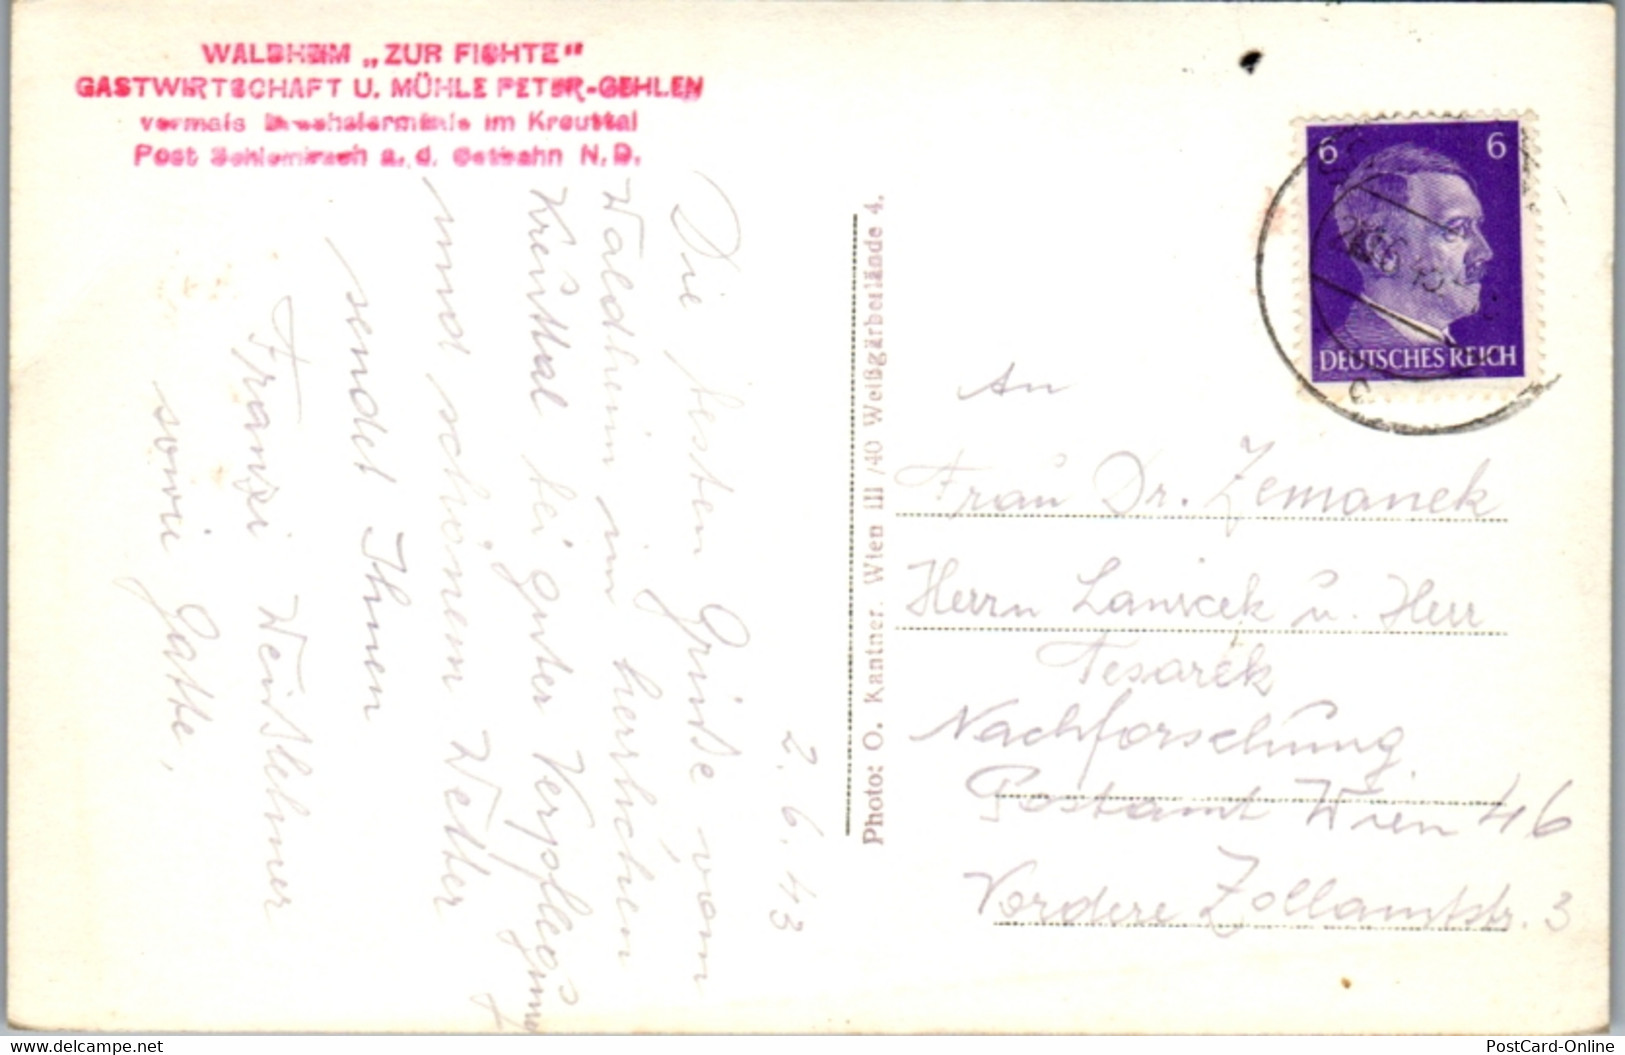 WALDHEIM „ZUR FICHTE"
GASTWIRTSCHAFT U. MÜHLE PETER-GEHLEN
vormals im Kreuttal
Post a. d. Ostbahn N. D.
2. 6. 43
Die besten Grüße vom
Waldheim im herrlichen
Kreuttal bei guter Verpflegung
und schönem Wetter
sendet Ihnen
Franzi
sowie Gatte,
Photo: O. Kantner, Wien III /40 Weißgärberlände 4.
6 6
DEUTSCHES REICH
An
Frau Dr. Zemanek
Herrn Lanicek u. Herr
Tesarek
Nachforschung
Postamt Wien 46
Vordere Zollamtstr. 3
www.delcampe.net
PostCard-Online